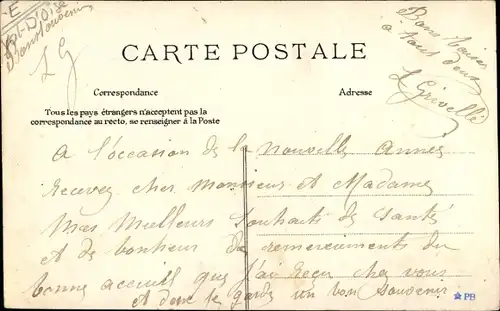 E
Val-D'Oise
Bon souvenir
L G
Bons baisers
à tous deux
L Grivellé
CARTE POSTALE
Correspondance
Adresse
Tous les pays étrangers n'acceptent pas la
correspondance au recto, se renseigner à la Poste
A l'occasion de la nouvelle année
recevez cher Monsieur et Madame
Mes Meilleurs souhaits de santé
et de bonheur de remerciements du
bonne accueil que j'ai reçu chez vous
et dont je garde un bon souvenir
PB